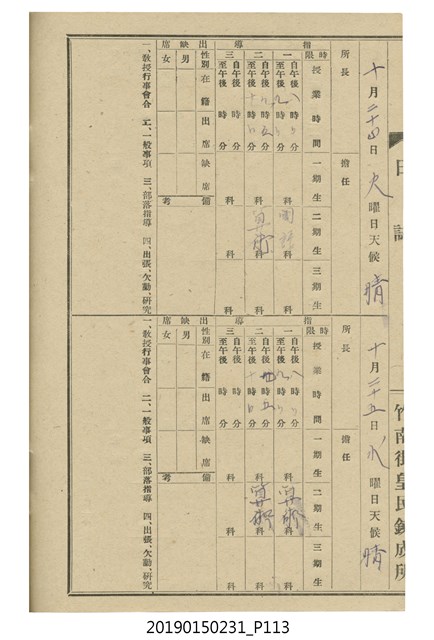 日誌
竹南街皇民鍊成所
十月二十四日 火曜日 天候 晴
所長 擔任
指導
時限 授業時間 一期生 二期生 三期生
一 自午後八時 分 至午後九時 分 科 國語科 科
二 自午後九時五分 至午後十時 分 科 算術科 科
三 自午後 時 分 至午後 時 分 科 科 科
出缺席
性別 在籍 出席 缺席 備考
男
女
一、教授行事會合 二、一般事項 三、部落指導 四、出張、欠勤、研究
十月二十五日 水曜日 天候 晴
所長 擔任
指導
時限 授業時間 一期生 二期生 三期生
一 自午後八時 分 至午後九時 分 科 算術科 科
二 自午後九時五分 至午後 時 分 科 算術科 科
三 自午後 時 分 至午後 時 分 科 科 科
出缺席
性別 在籍 出席 缺席 備考
男
女
一、教授行事會合 二、一般事項 三、部落指導 四、出張、欠勤、研究
20190150231_P113